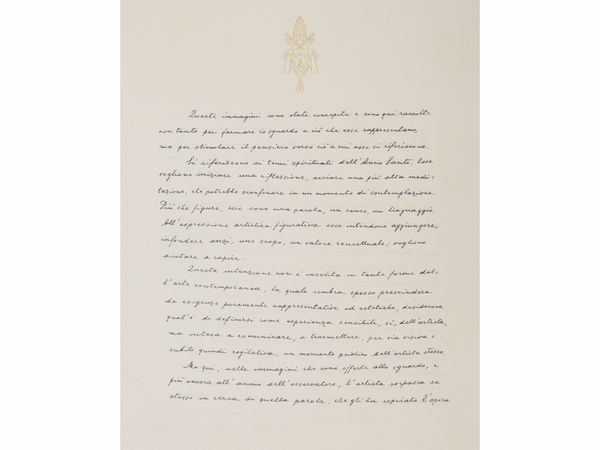 Queste immagini sono state concepite e sono qui raccolte
non tanto per fermare lo sguardo a ciò che esse rappresentano,
ma per stimolare il pensiero verso ciò a cui esse si riferiscono.
Si riferiscono ai temi spirituali dell'Anno Santo. Esse
vogliono iniziare una riflessione, avviare una più alta medi-
tazione, che potrebbe sconfinare in un momento di contemplazione.
Più che figure, esse sono una parola, un senso, un linguaggio.
All'espressione artistica figurativa esse intendono aggiungere,
infondere anzi, uno scopo, un valore concettuale; vogliono
aiutare a capire.
Questa intenzione non è insolita in tante forme del-
l'arte contemporanea, la quale sembra spesso prescindere
da esigenze puramente rappresentative ed estetiche, desiderosa
qual'è di definirsi come esperienza sensibile, sì, dell'artista,
ma intesa a comunicare, a trasmettere, per via visiva e
subito quindi cogitativa, un momento psichico dell'artista stesso.
Ma qui, nelle immagini che sono offerte allo sguardo, e
più ancora all'animo dell'osservatore, l'artista sorpassa se
stesso in cerca di quella parola, che gli ha ispirato l'opera